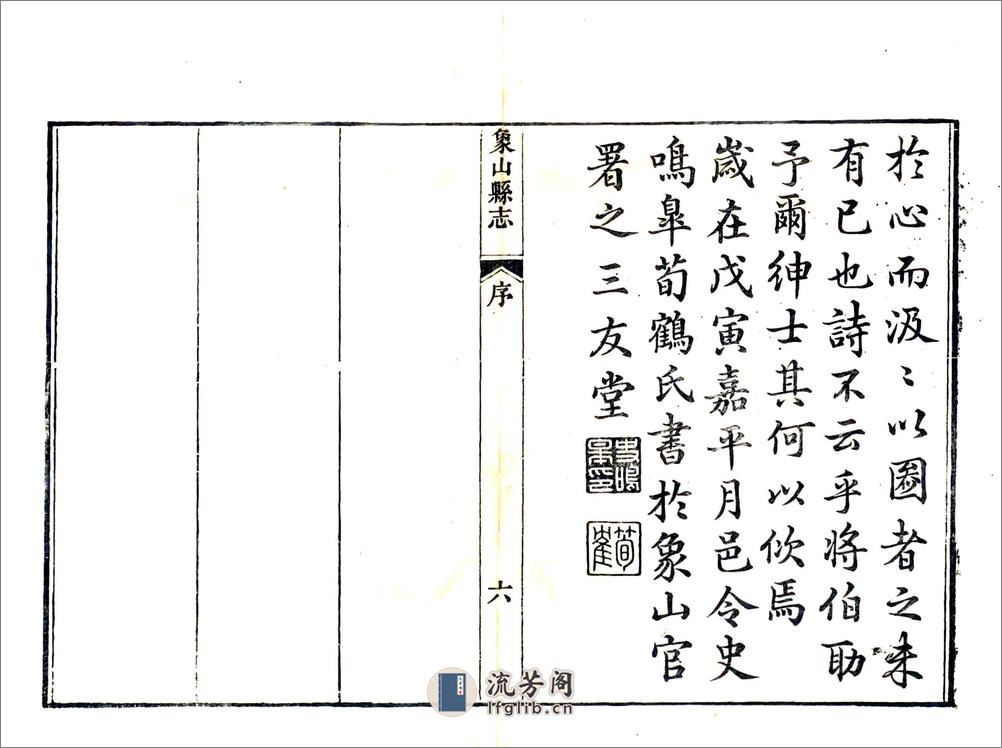 於心而汲〻以圖者之未
有已也詩不云乎將伯助
予爾紳士其何以佽焉
歲在戊寅嘉平月邑令史
鳴臯荀鶴氏書於象山官
署之三友堂
史鳴臯印
荀鶴
象山縣志
序
六
流芳阁
lfglib.cn